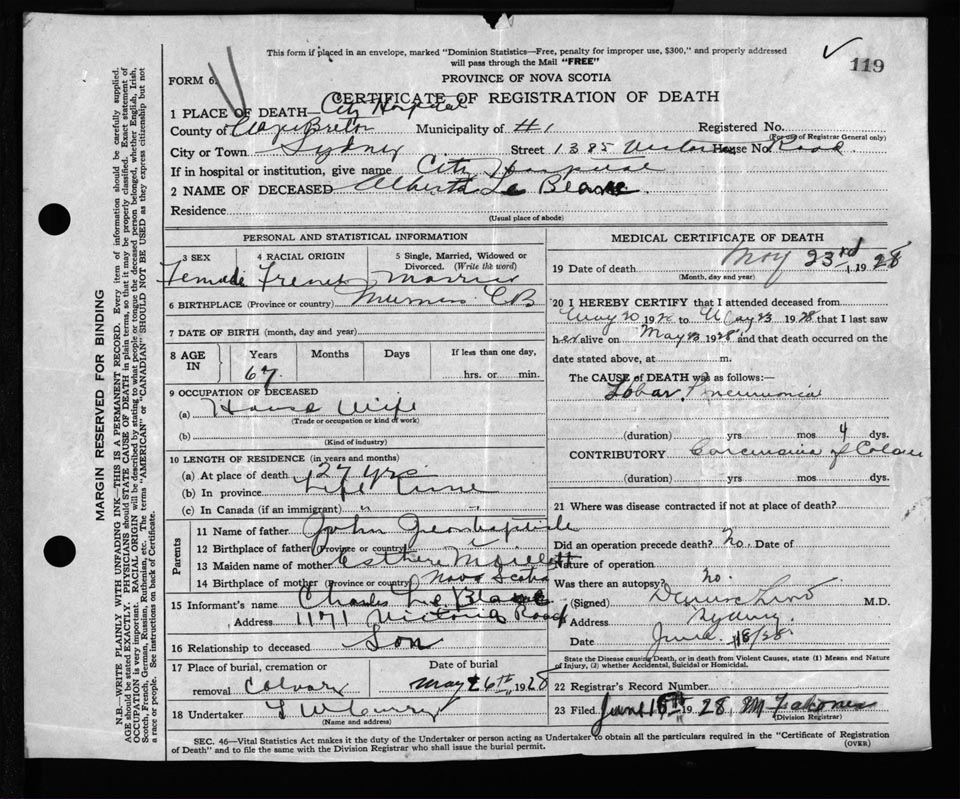 This form if placed in an envelope, marked "Dominion Statistics—Free, penalty for improper use, $300," and properly addressed
will pass through the Mail "FREE"
119
FORM 6.
PROVINCE OF NOVA SCOTIA
CERTIFICATE OF REGISTRATION OF DEATH
1 PLACE OF DEATH City Hospital
County of Cape Breton Municipality of #1 Registered No.
(For use of Registrar General only)
City or Town Sydney Street 1385 Victoria House No. Road
If in hospital or institution, give name City Hospital
2 NAME OF DECEASED Alberta Le Blanc
Residence
(Usual place of abode)
PERSONAL AND STATISTICAL INFORMATION
3 SEX 4 RACIAL ORIGIN 5 Single, Married, Widowed or
Divorced. (Write the word)
Female French Married
6 BIRTHPLACE (Province or country) CB
7 DATE OF BIRTH (month, day and year)
8 AGE IN Years Months Days If less than one day,
67 hrs. or min.
9 OCCUPATION OF DECEASED
(a) House Wife
(Trade or occupation or kind of work)
(b)
(Kind of industry)
10 LENGTH OF RESIDENCE (in years and months)
(a) At place of death 27 yrs
(b) In province Life time
(c) In Canada (if an immigrant)
Parents
11 Name of father John
12 Birthplace of father (Province or country)
13 Maiden name of mother Esther
14 Birthplace of mother (Province or country) Nova Scotia
15 Informant's name Charles Le Blanc
Address 1171 Victoria Road
16 Relationship to deceased Son
17 Place of burial, cremation or Date of burial
removal Calvary May 26th 1928
18 Undertaker
(Name and address)
MEDICAL CERTIFICATE OF DEATH
19 Date of death May 23rd 1928
(Month, day and year)
20 I HEREBY CERTIFY that I attended deceased from
May 20 192 to May 23 1928 that I last saw
her alive on May 23 1928 and that death occurred on the
date stated above, at m.
The CAUSE of DEATH was as follows:—
Lobar Pneumonia
(duration) yrs mos 4 dys.
CONTRIBUTORY Carcinoma of Colon
(duration) yrs mos dys.
21 Where was disease contracted if not at place of death?
Did an operation precede death? no. Date of
Nature of operation
Was there an autopsy? no.
(Signed) M.D.
Address Sydney.
Date June 18/28
State the Disease causing Death, or in death from Violent Causes, state (1) Means and Nature
of Injury, (2) whether Accidental, Suicidal or Homicidal.
22 Registrar's Record Number
23 Filed June 18th 1928
(Division Registrar)
SEC. 46—Vital Statistics Act makes it the duty of the Undertaker or person acting as Undertaker to obtain all the particulars required in the "Certificate of Registration
of Death" and to file the same with the Division Registrar who shall issue the burial permit.
(OVER)
MARGIN RESERVED FOR BINDING
N.B.—WRITE PLAINLY WITH UNFADING INK—THIS IS A PERMANENT RECORD. Every item of information should be carefully supplied.
AGE should be stated EXACTLY. PHYSICIANS should STATE CAUSE OF DEATH in plain terms, so that it may be properly classified. Exact statement of
OCCUPATION is very important. RACIAL ORIGIN will be described by stating to what people or tongue the deceased person belonged, whether English, Irish,
Scotch, French, German, Russian, Ruthenian, etc. The terms "AMERICAN" or "CANADIAN" SHOULD NOT BE USED as they express citizenship but not
a race or people. See instructions on back of Certificate.